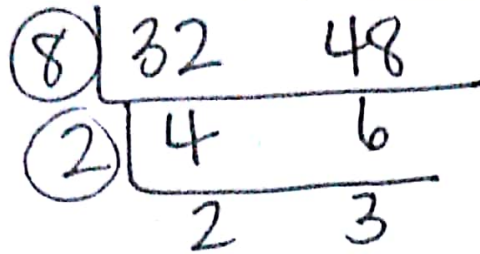 8 32 48
2 4 6
2 3